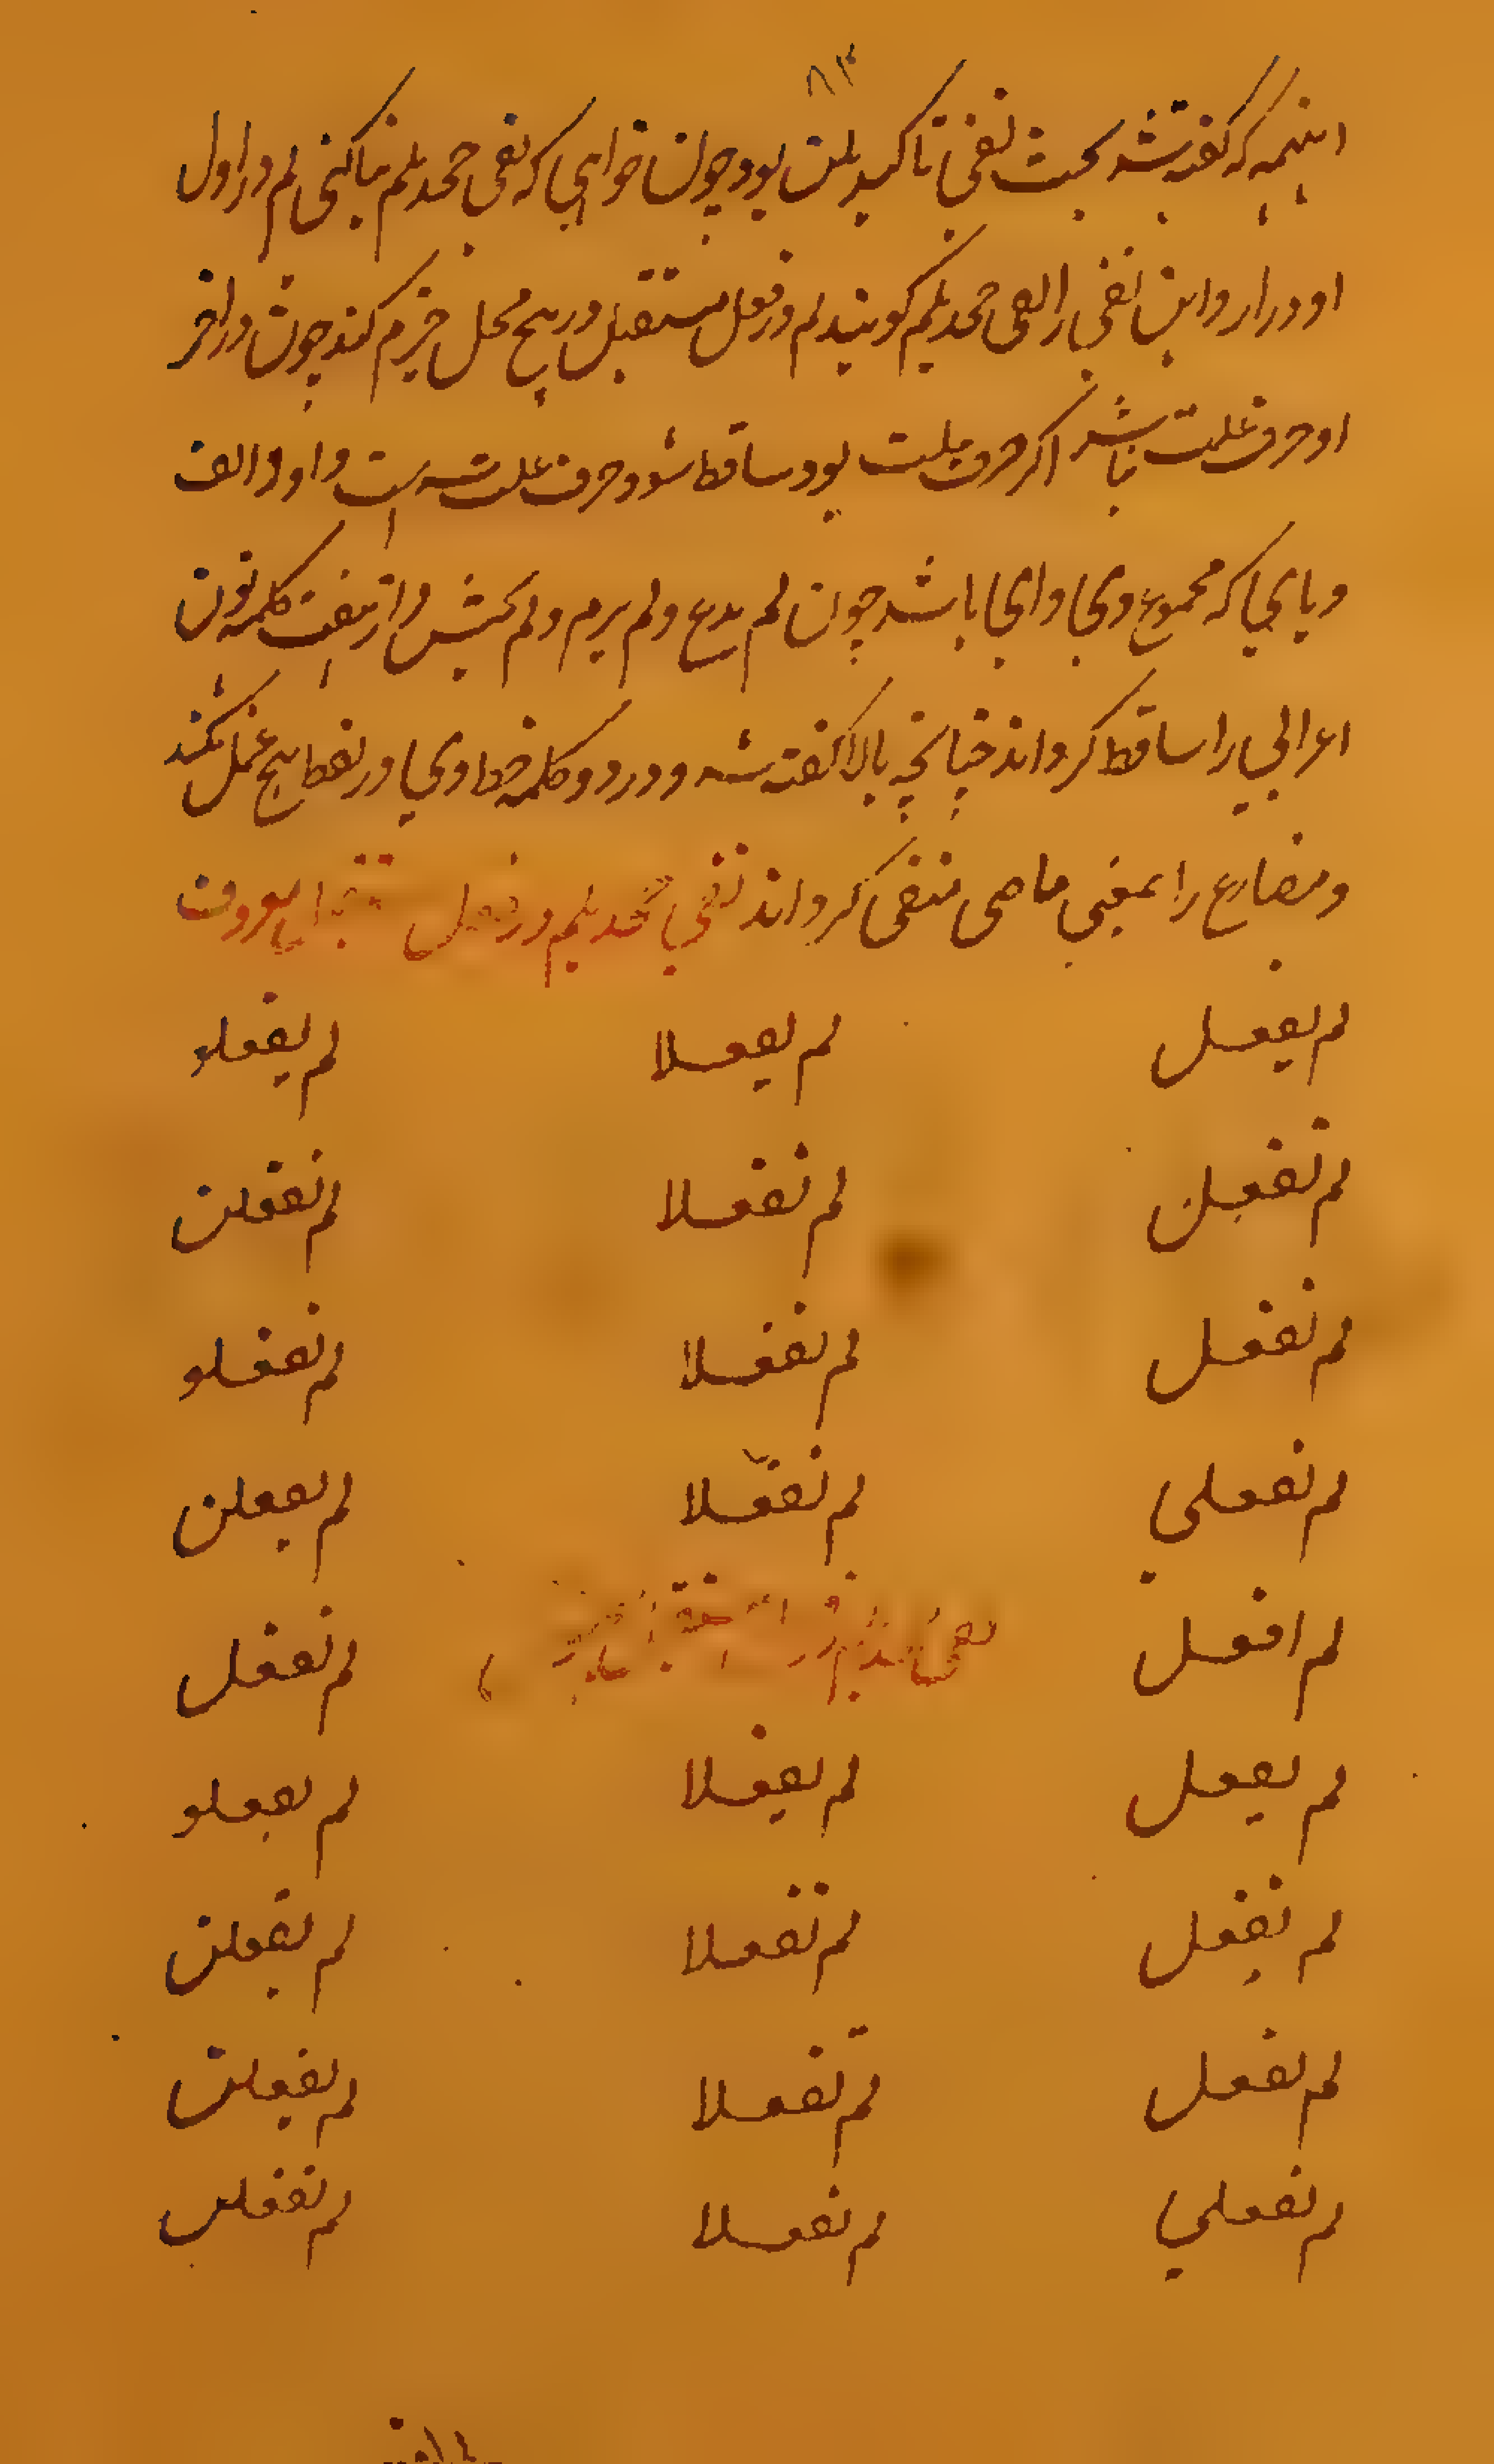 ۸۳
اینهمه که گفته شد بحث نفی تاکید بلن بود چون خواهی که نفی جحد بلم بنا کنی لم در اول
او درار و این نفی را نفی جحد بلم گویند لم در فعل مستقبل در پنج محل جزم کند چون در اخر
او حرف علت نباشد اکر حرف علت بود ساقط شود حرف علت سه است واو و الف
و یای که مجموع وی وای باشد چون لم یدع و لم یرم و لم یخش و از هفت کلمه نون
اعرابی را ساقط کرداند چنانچه بالا گفته شد و در دو کلمه لفظاوی در لفظ هیچ عمل نکند
و مضارع را بمعنی ماضی منفی کرداند نفی جحد بلم در فعل مستقبل معروف
لم یفعل لم یفعلا لم یفعلو
لم تفعل لم تفعلا لم یفعلن
لم تفعل لم تفعلا لم تفعلو
لم تفعلی لم تفعلا لم تفعلن
لم افعل لم نفعل
لم یفعل لم یفعلا لم یفعلو
لم تفعل لم تفعلا لم یفعلن
لم تفعل لم تفعلا
لم تفعلی لم تفعلا لم تفعلن